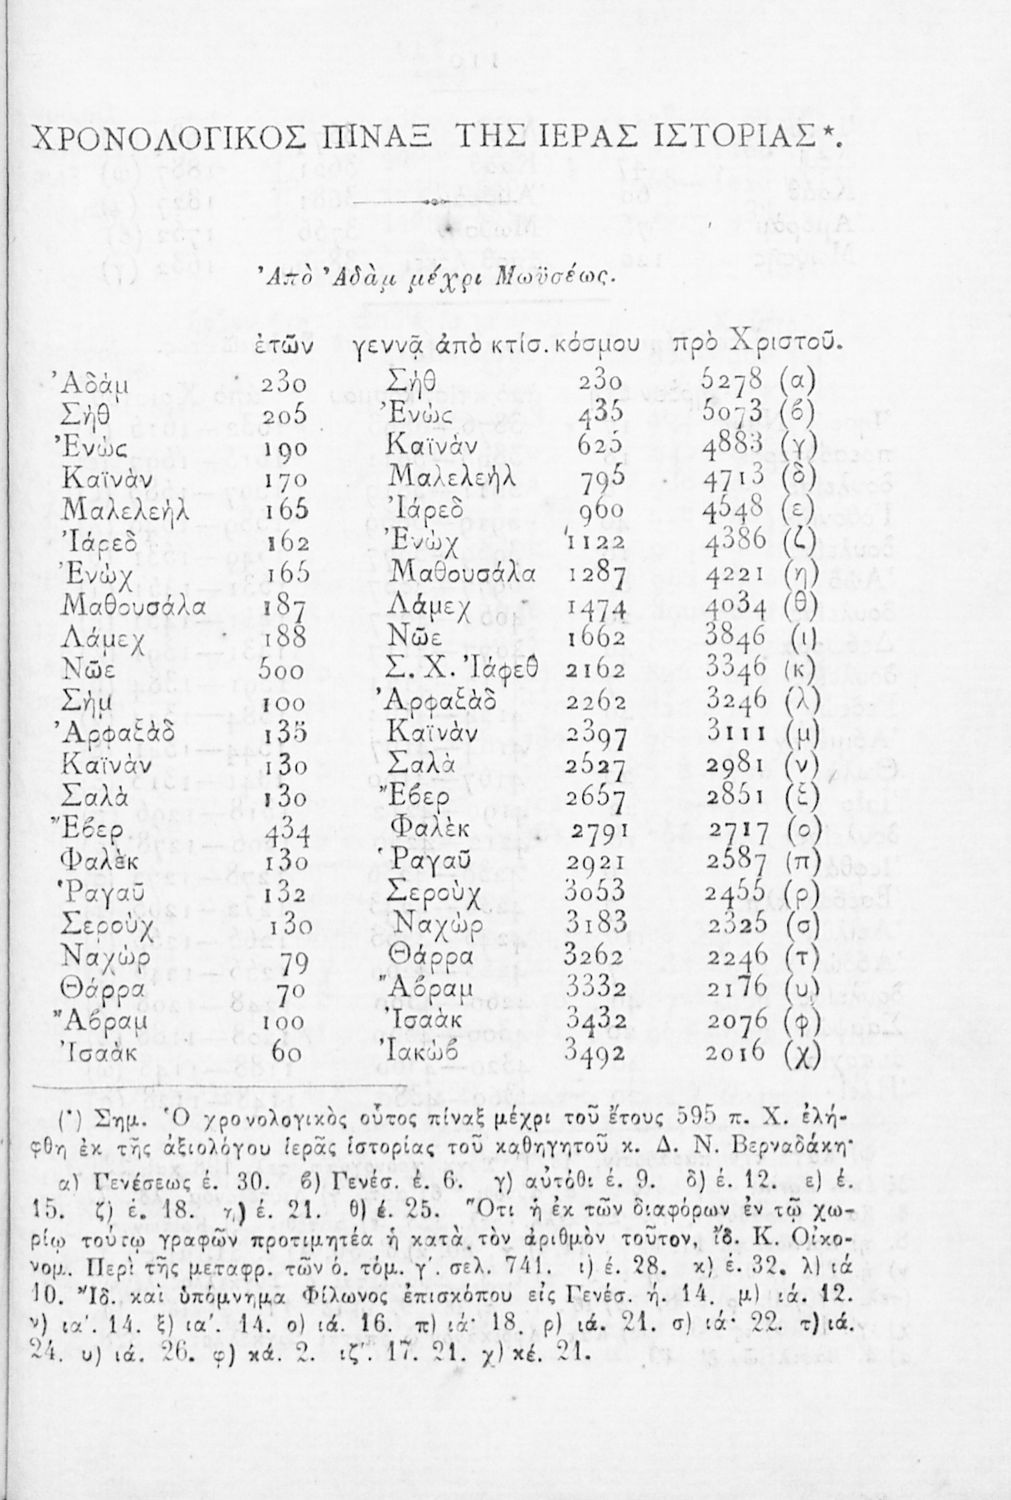 ΧΡΟΝΟΛΟΓΙΚΟΣ ΠΙΝΑΞ ΤΗΣ ΙΕΡΑΣ ΙΣΤΟΡΙΑΣ*.
Ἀπὸ Ἀδὰμ μέχρι Μωϋσέως.
ἐτῶν γεννᾷ ἀπὸ κτίσ. κόσμου πρὸ Χριστοῦ.
Ἀδὰμ 230 Σὴθ 230 5278 (α)
Σὴθ 205 Ἐνὼς 435 5073 (β)
Ἐνὼς 190 Καϊνὰν 625 4883 (γ)
Καϊνὰν 170 Μαλελεὴλ 795 4713 (δ)
Μαλελεὴλ 165 Ἰάρεδ 960 4548 (ε)
Ἰάρεδ 162 Ἐνὼχ 1122 4386 (ζ)
Ἐνὼχ 165 Μαθουσάλα 1287 4221 (η)
Μαθουσάλα 187 Λάμεχ 1474 4034 (θ)
Λάμεχ 188 Νῶε 1662 3846 (ι)
Νῶε 500 Σ. Χ. Ἰάφεθ 2162 3346 (κ)
Σὴμ 100 Ἀρφαξὰδ 2262 3246 (λ)
Ἀρφαξὰδ 135 Καϊνὰν 2397 3111 (μ)
Καϊνὰν 130 Σαλὰ 2527 2981 (ν)
Σαλὰ 130 Ἔβερ 2657 2851 (ξ)
Ἔβερ 434 Φαλὲκ 2791 2717 (ο)
Φαλὲκ 130 Ῥαγαῦ 2921 2587 (π)
Ῥαγαῦ 132 Σεροὺχ 3053 2455 (ρ)
Σεροὺχ 130 Ναχὼρ 3183 2325 (σ)
Ναχὼρ 79 Θάρρα 3262 2246 (τ)
Θάρρα 70 Ἄβραμ 3332 2176 (υ)
Ἄβραμ 100 Ἰσαὰκ 3432 2076 (φ)
Ἰσαὰκ 60 Ἰακὼβ 3492 2016 (χ)
(*) Σημ. Ὁ χρονολογικὸς οὗτος πίναξ μέχρι τοῦ ἔτους 595 π. Χ. ἐλή-
φθη ἐκ τῆς ἀξιολόγου ἱερᾶς ἱστορίας τοῦ καθηγητοῦ κ. Δ. Ν. Βερναδάκη·
α) Γενέσεως έ. 30. β) Γενέσ. έ. 6. γ) αὐτόθι έ. 9. δ) έ. 12. ε) έ.
15. ζ) έ. 18. η) έ. 21. θ) έ. 25. Ὅτι ἡ ἐκ τῶν διαφόρων ἐν τῷ χω-
ρίῳ τούτῳ γραφῶν προτιμητέα ἡ κατὰ τὸν ἀριθμὸν τοῦτον, ἴδ. Κ. Οἰκο-
νομ. Περὶ τῆς μεταφρ. τῶν ό. τόμ. γ΄. σελ. 741. ι) έ. 28. κ) έ. 32. λ) ιά
10. Ἴδ. καὶ ὑπόμνημα Φίλωνος ἐπισκόπου εἰς Γενέσ. ή. 14. μ) ιά. 12.
ν) ια΄. 14. ξ) ια΄. 14. ο) ιά. 16. π) ιά· 18. ρ) ιά. 21. σ) ιά· 22. τ) ιά.
24. υ) ιά. 26. φ) κά. 2. ιζ΄. 17. 21. χ) κέ. 21.